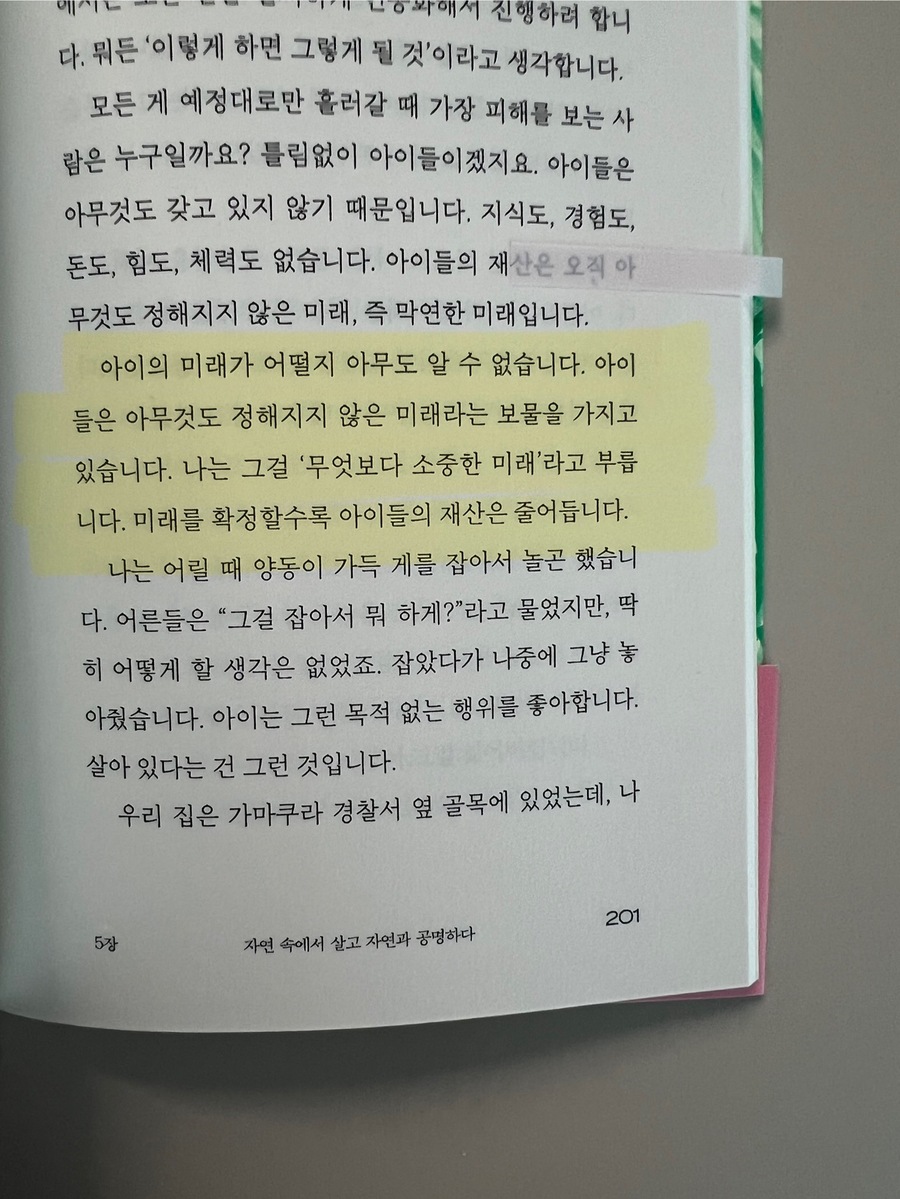 진행하려 합니
다. 뭐든 ‘이렇게 하면 그렇게 될 것’이라고 생각합니다.
모든 게 예정대로만 흘러갈 때 가장 피해를 보는 사
람은 누구일까요? 틀림없이 아이들이겠지요. 아이들은
아무것도 갖고 있지 않기 때문입니다. 지식도, 경험도,
돈도, 힘도, 체력도 없습니다. 아이들의 재산은 오직 아
무것도 정해지지 않은 미래, 즉 막연한 미래입니다.
아이의 미래가 어떨지 아무도 알 수 없습니다. 아이
들은 아무것도 정해지지 않은 미래라는 보물을 가지고
있습니다. 나는 그걸 ‘무엇보다 소중한 미래’라고 부릅
니다. 미래를 확정할수록 아이들의 재산은 줄어듭니다.
나는 어릴 때 양동이 가득 게를 잡아서 놀곤 했습니
다. 어른들은 “그걸 잡아서 뭐 하게?”라고 물었지만, 딱
히 어떻게 할 생각은 없었죠. 잡았다가 나중에 그냥 놓
아줬습니다. 아이는 그런 목적 없는 행위를 좋아합니다.
살아 있다는 건 그런 것입니다.
우리 집은 가마쿠라 경찰서 옆 골목에 있었는데, 나
5장 자연 속에서 살고 자연과 공명하다 201